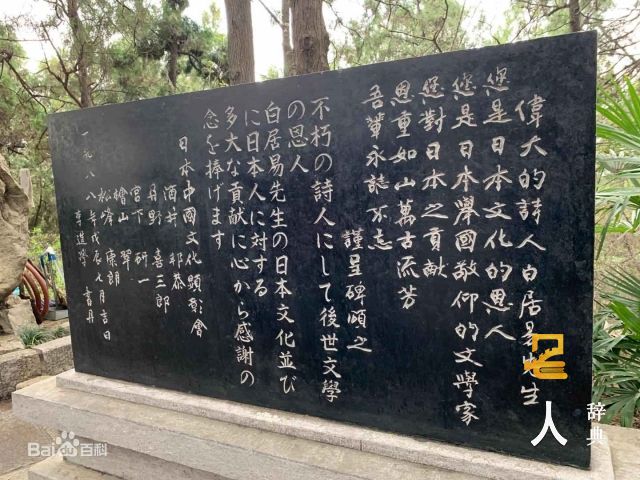 偉大的詩人白居易先生
您是日本文化的恩人
您是日本舉國敬仰的文學家
您對日本之貢献
恩重如山萬古流芳
吾輩永誌不忘
謹呈碑頌之
不朽の詩人にして後世文學
の恩人
白居易先生の日本文化並び
に日本人に対する
多大な貢献に心から感謝の
念を捧げます
日本中國文化顕彰會
酒井 邦恭
喜三郎
宮下 研一
檜山 翠
松峰 康朗
一九八八年戊辰九月吉日
書丹
老人辞典
Bai百科